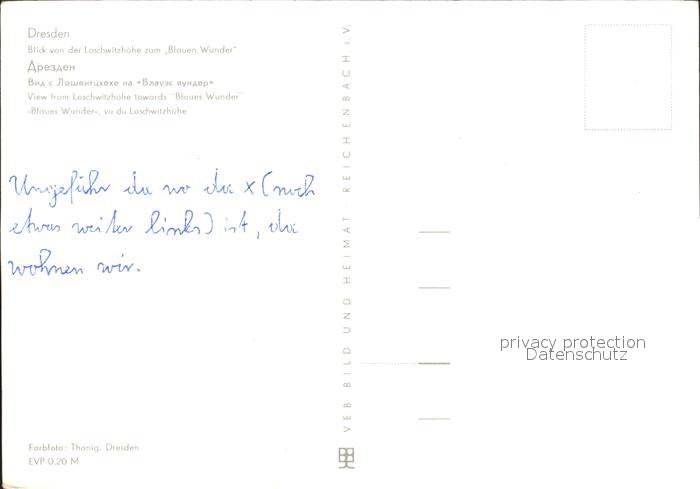 Dresden
Blick von der Loschwitzhöhe zum „Blauen Wunder"
Дрезден
Вид с Лошвитцхехе на «Блауэс вундер»
View from Loschwitzhöhe towards "Blaues Wunder"
«Blaues Wunder», vu du Loschwitzhöhe
Ungefähr da wo das x (noch
etwas weiter links) ist, da
wohnen wir.
VEB BILD UND HEIMAT · REICHENBACH i. V.
privacy protection
Datenschutz
Farbfoto: Thonig, Dresden
EVP 0.20 M